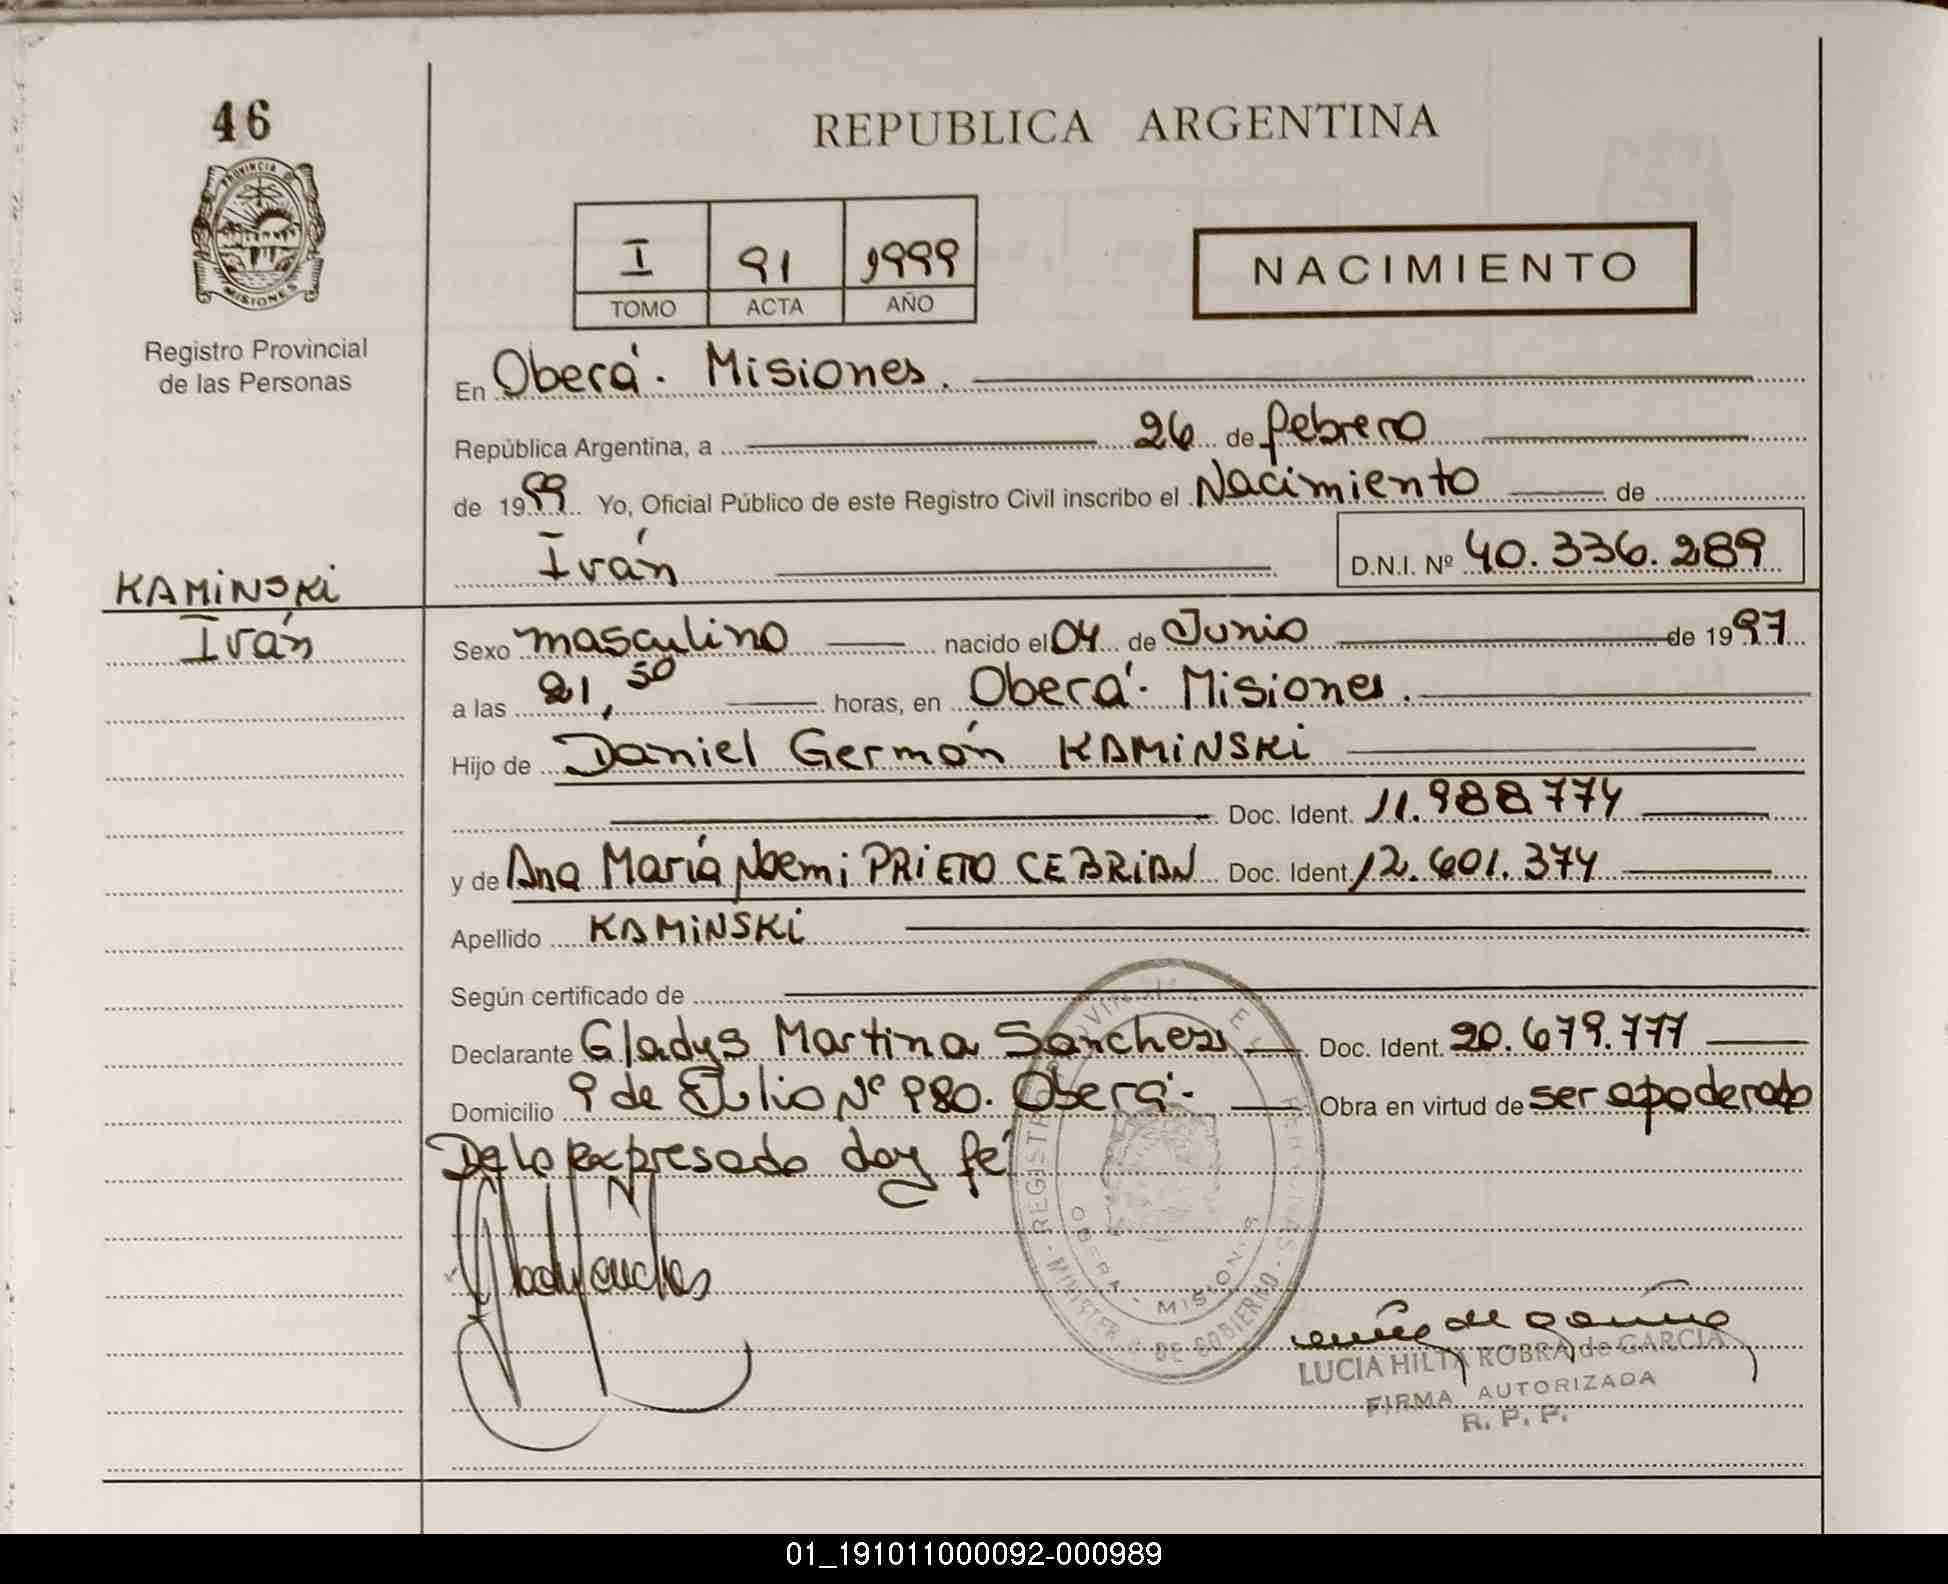 46
PROVINCIA DE
MISIONES
Registro Provincial
de las Personas
KAMiNSKi
Iván
REPUBLICA ARGENTINA
I 91 1999
TOMO ACTA AÑO
NACIMIENTO
En Oberá. Misiones.
República Argentina, a 26 de febrero
de 1999 Yo, Oficial Público de este Registro Civil inscribo el Nacimiento de
Iván D.N.I. Nº 40.336.289
Sexo masculino nacido el 04 de Junio de 1997
a las 21,50 horas, en Oberá. Misiones.
Hijo de Daniel Germán KAMiNSKi
Doc. Ident. 11.988774
y de Ana María Noemi PRiETO CEBRiAN Doc. Ident. 12.601.374
Apellido KAMiNSKi
Según certificado de
Declarante Gladys Martina Sanchez Doc. Ident. 20.679.777
Domicilio 9 de Julio Nº 980. Oberá. Obra en virtud de ser apoderado
De lo expresado doy fé
OBERA - MISIONES
MINISTERIO DE GOBIERNO
LUCIA HILTA ROBRA de GARCIA
FIRMA AUTORIZADA
R. P. P.
01_191011000092-000989